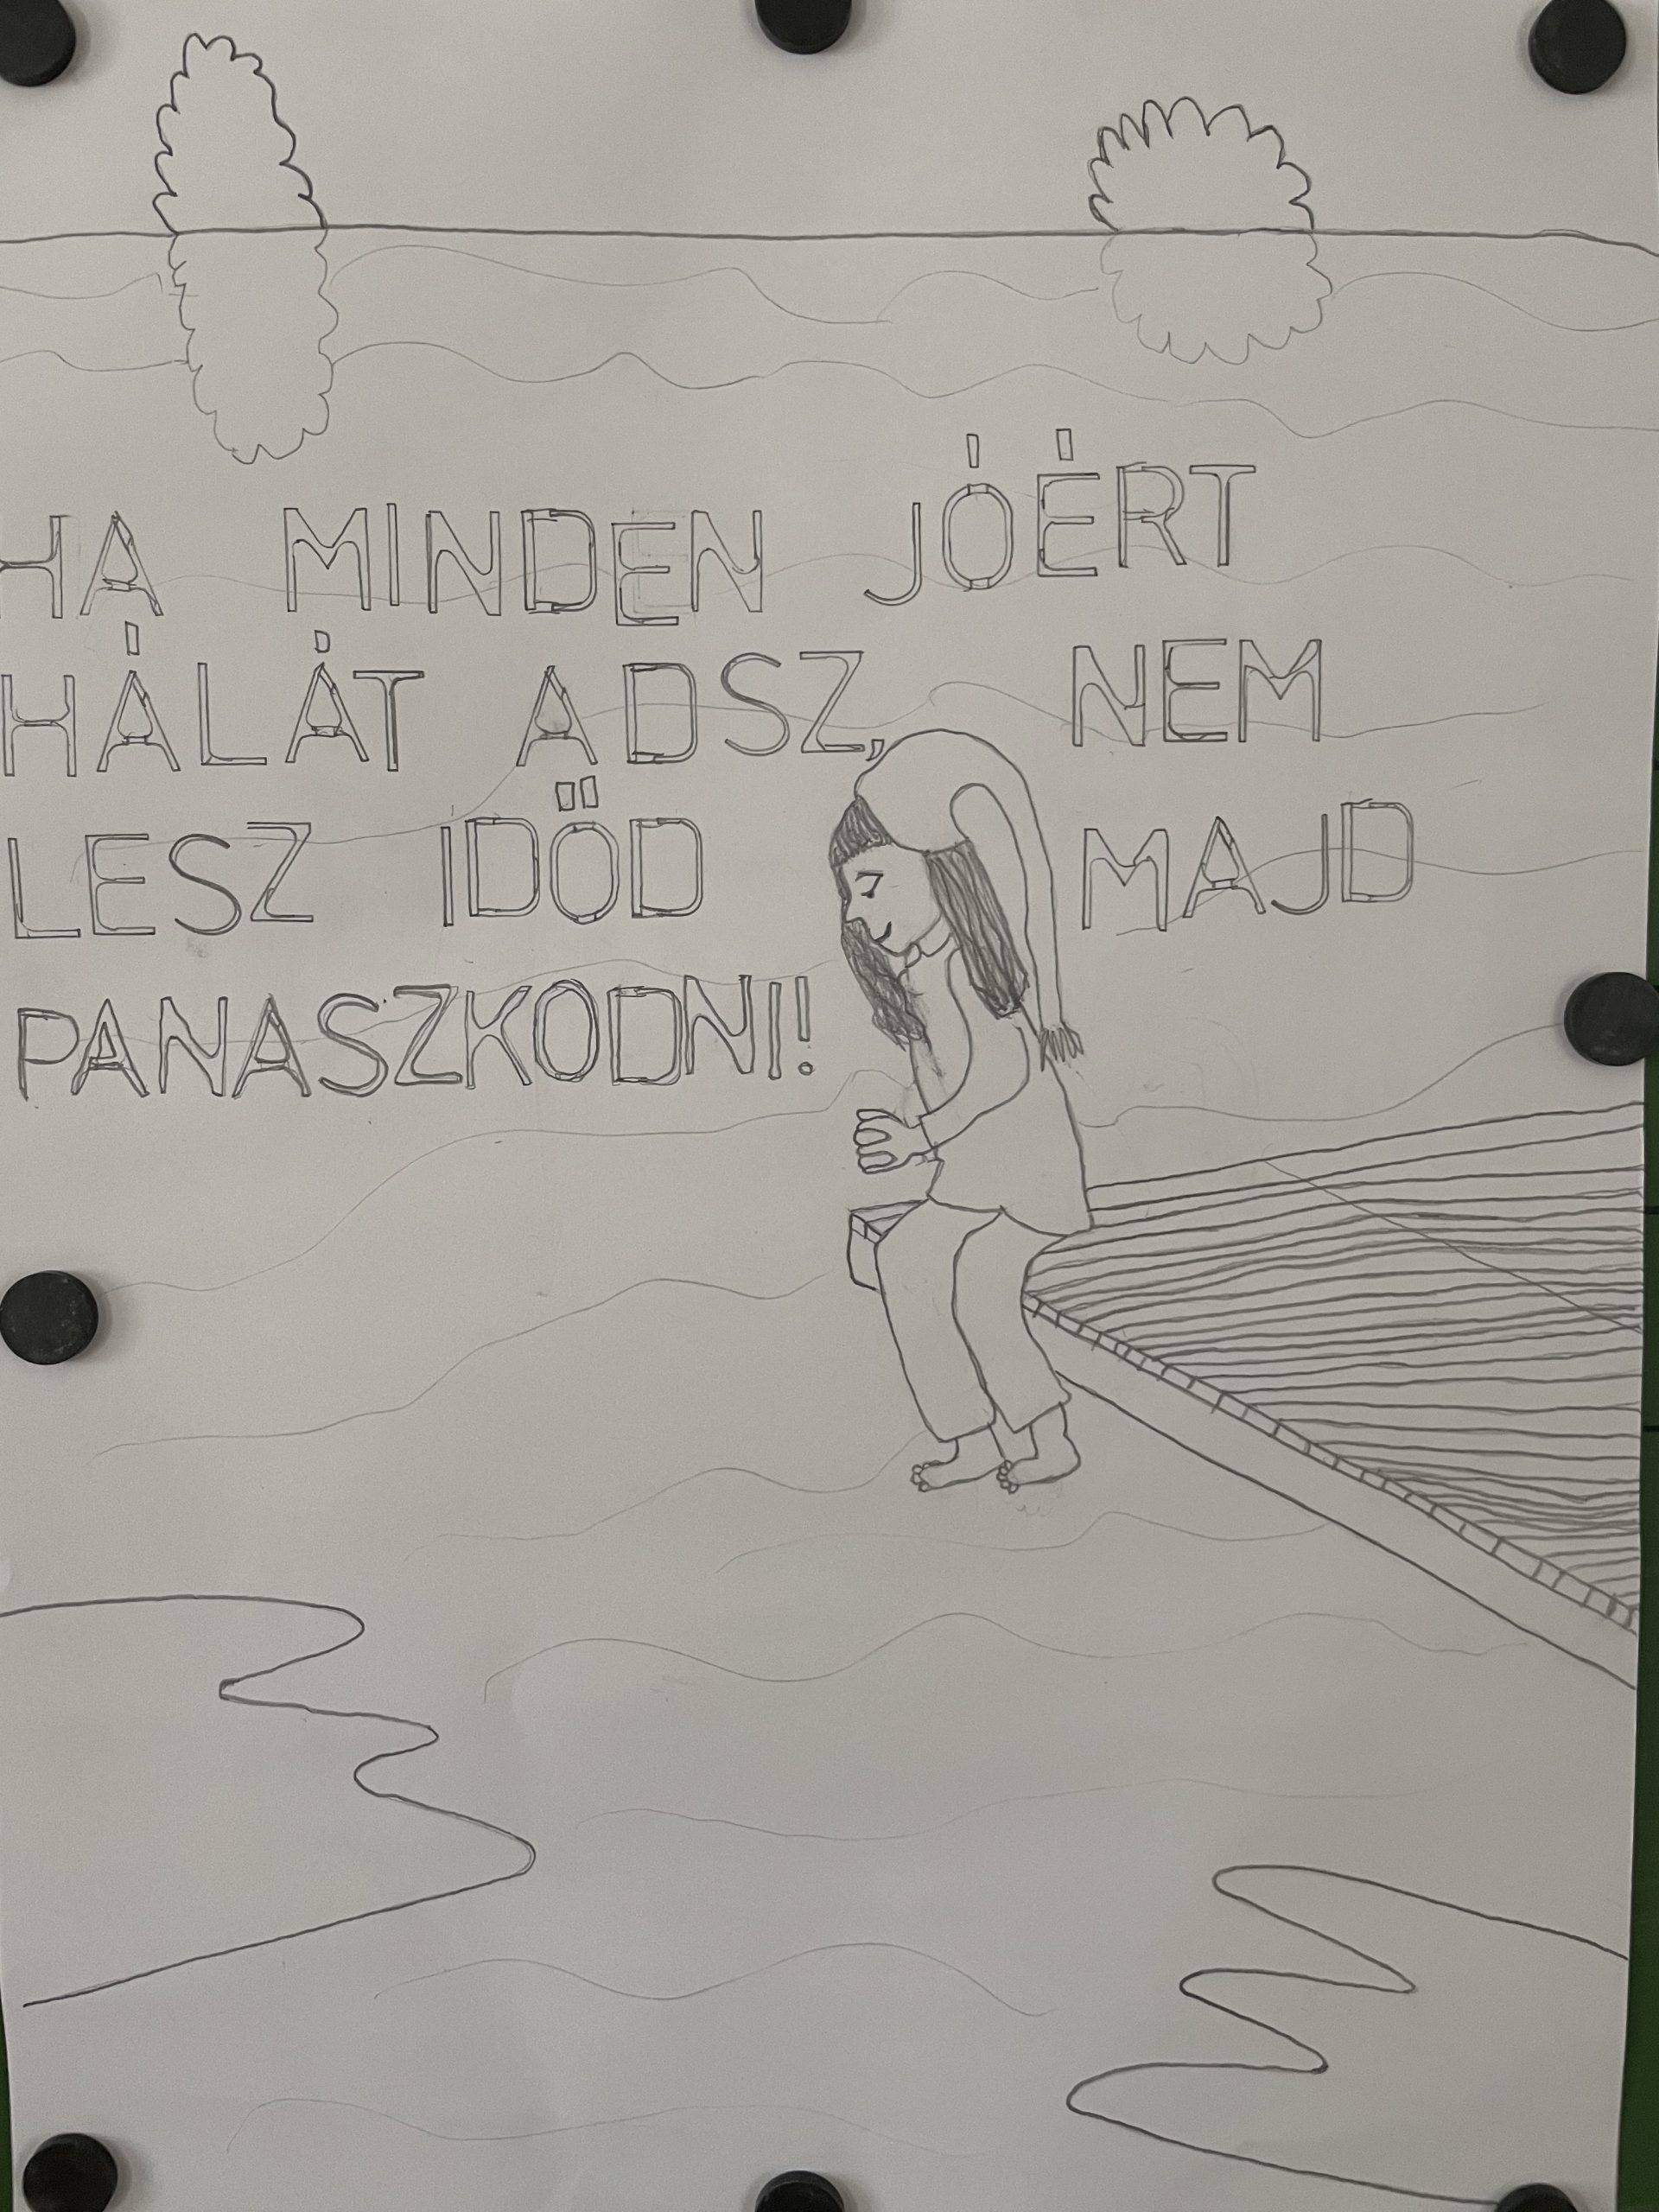 HA MINDEN JÓÉRT
HÁLÁT ADSZ, NEM
LESZ IDŐD MAJD
PANASZKODNI!